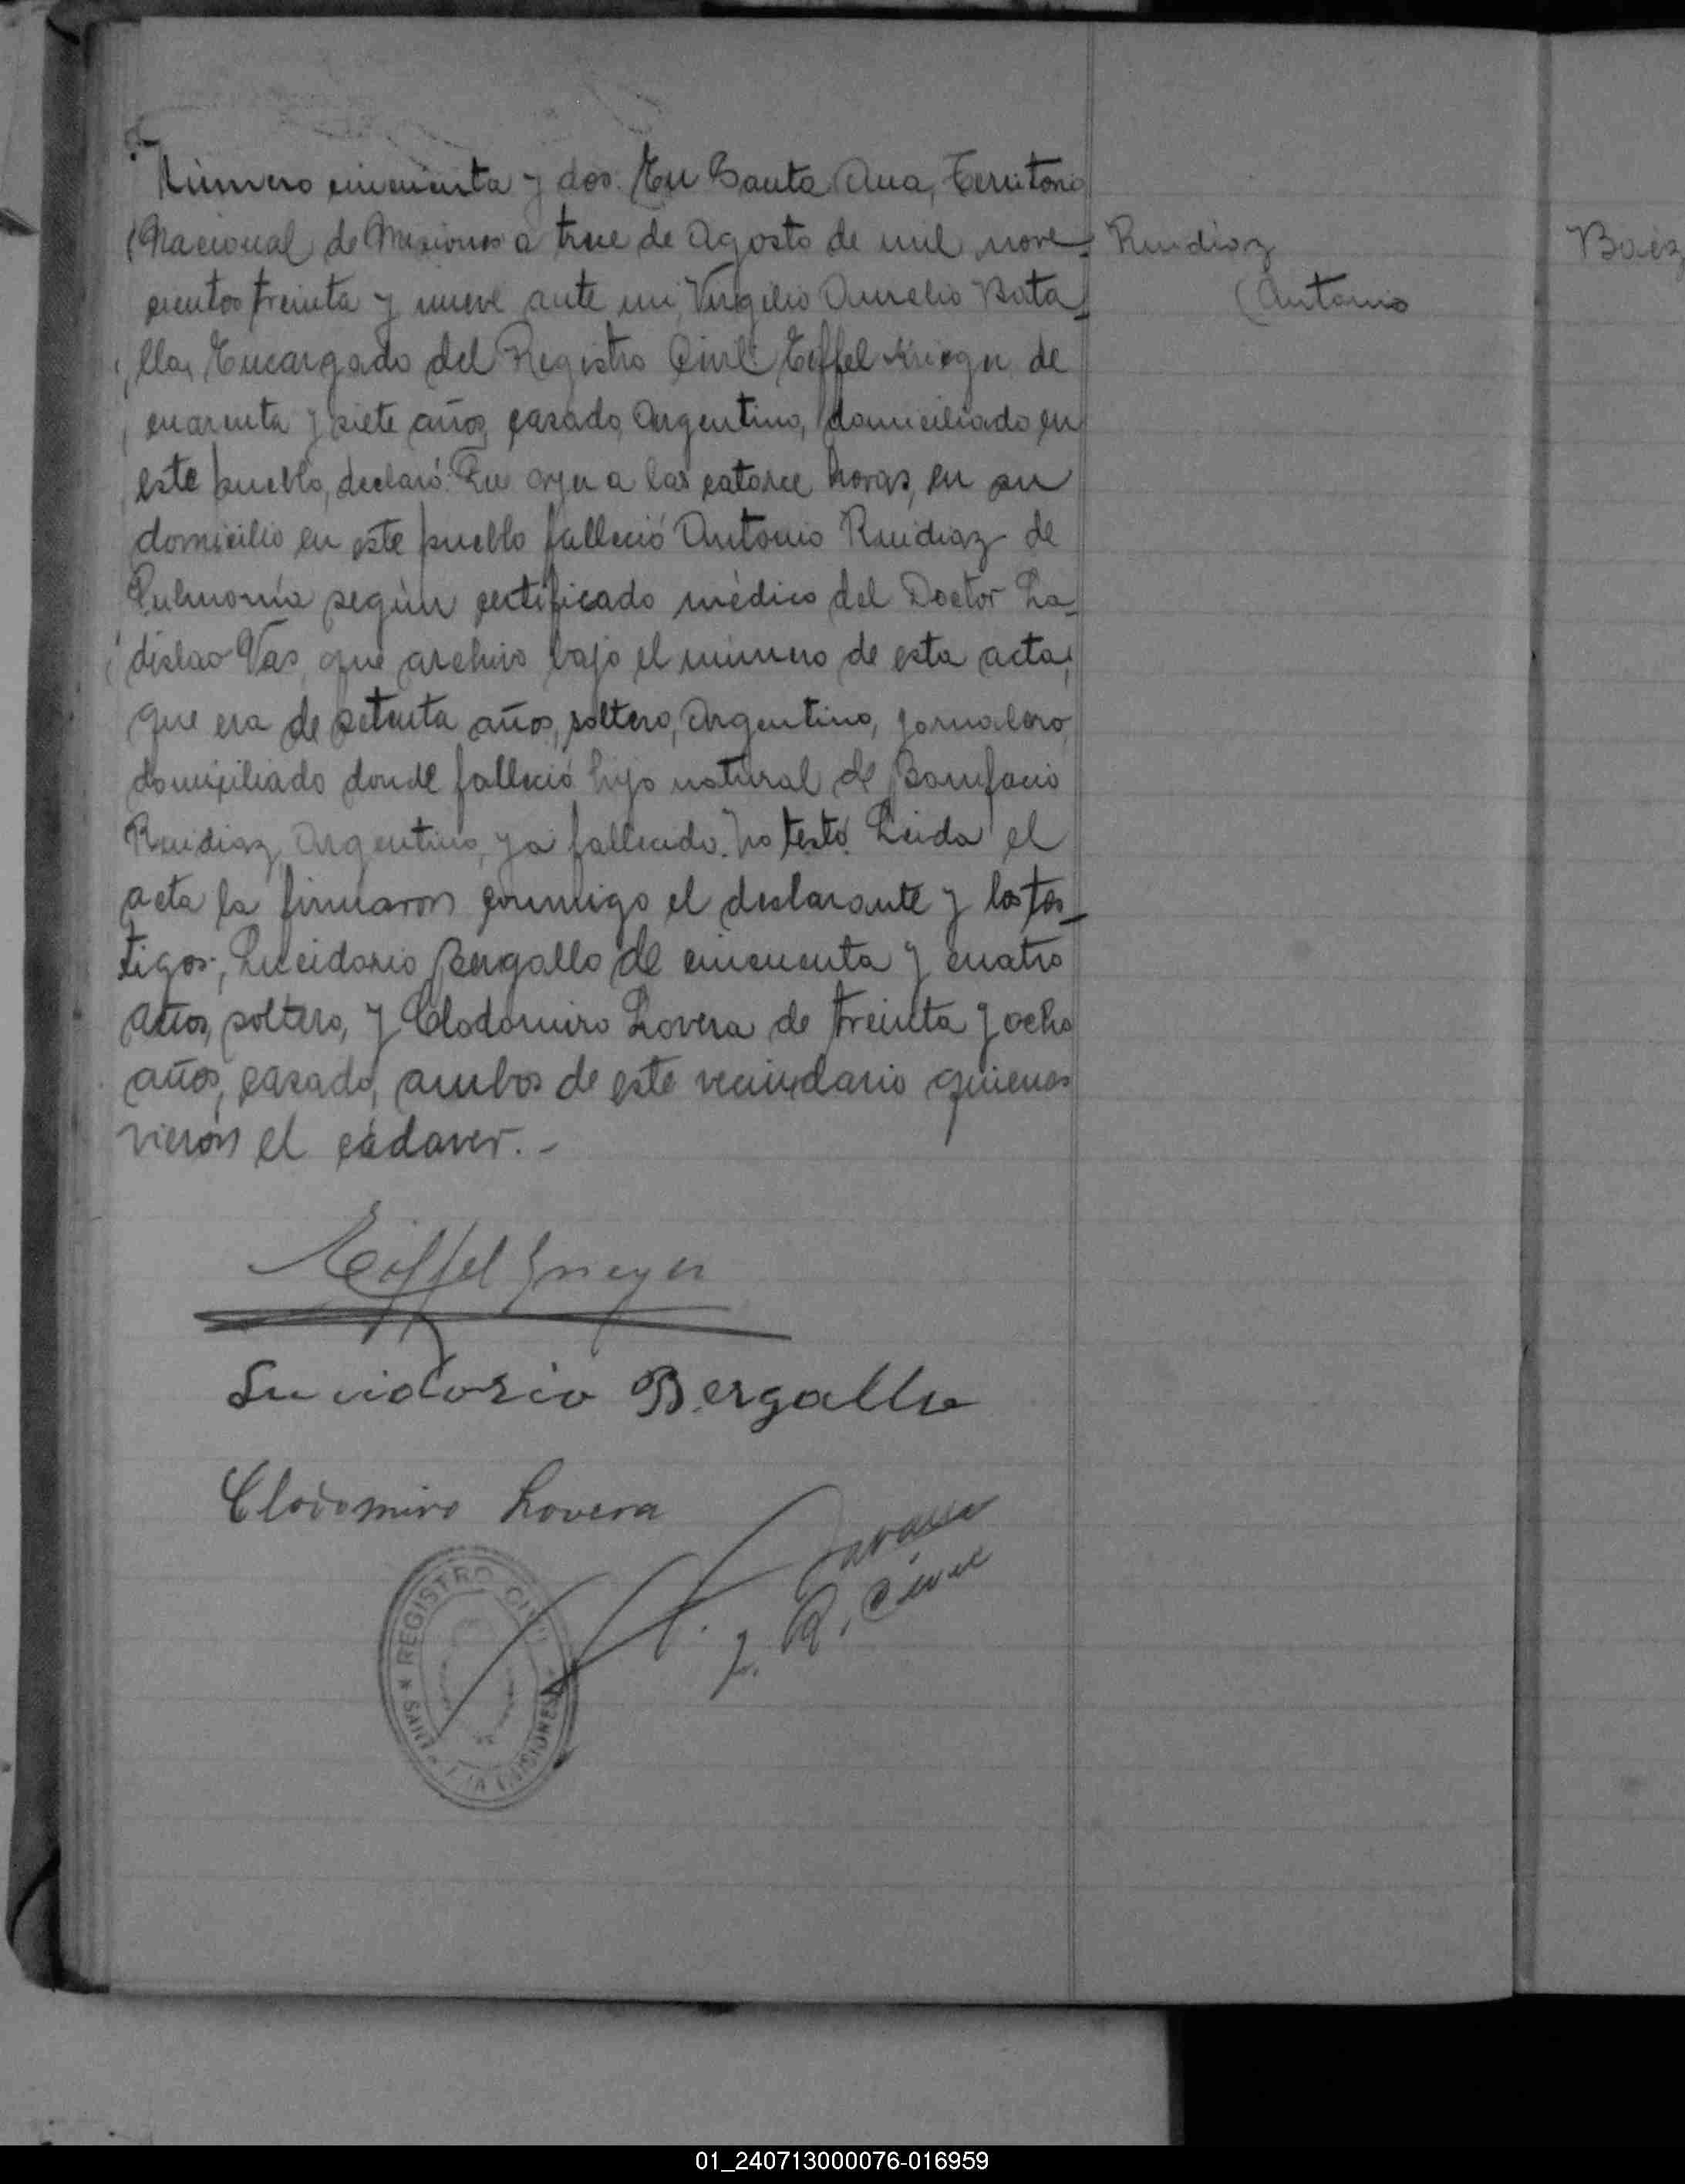 Número cincuenta y dos. En Santa Ana, Territorio
Nacional de Misiones a trece de Agosto de mil nove-
cientos treinta y nueve ante mi, Virgilio Aurelio Bata-
lla, Encargado del Registro Civil: Eiffel Krieger de
cuarenta y siete años, casado, Argentino, domiciliado en
este pueblo, declaró: Que ayer a las catorce horas, en su
domicilio en este pueblo falleció Antonio Ruidiaz de
Pulmonía según certificado médico del Doctor La-
dislao Vas, que archivo bajo el número de esta acta,
que era de setenta años, soltero, Argentino, jornalero,
domiciliado donde falleció hijo natural de Bonifacio
Ruidiaz, Argentino, ya fallecido. No testó. Leida el
acta la firmaron conmigo el declarante y los tes-
tigos; Lucidorio Bergallo de cincuenta y cuatro
años, soltero, y Clodomiro Lovera de treinta y ocho
años, casado, ambos de este vecindario quienes
vierón el cádaver.-
Ruidiaz
Antonio
Baez
Eiffel Krieger
Lucidorio Bergallo
Clodomiro Lovera
J. R. Civil
REGISTRO CIVIL
SANTA ANA (MISIONES)
01_240713000076-016959